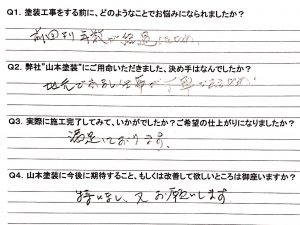 Q1. 塗装工事をする前に、どのようなことでお悩みになられましたか?
前回より年数が経過したため。
Q2. 弊社"山本塗装"にご用命いただきました、決め手はなんでしたか?
地元であるし仕事が丁寧なるため!
Q3. 実際に施工完了してみて、いかがでしたか?ご希望の仕上がりになりましたか?
満足しております。
Q4. 山本塗装に今後に期待すること、もしくは改善して欲しいところは御座いますか?
特になし、又お願いします